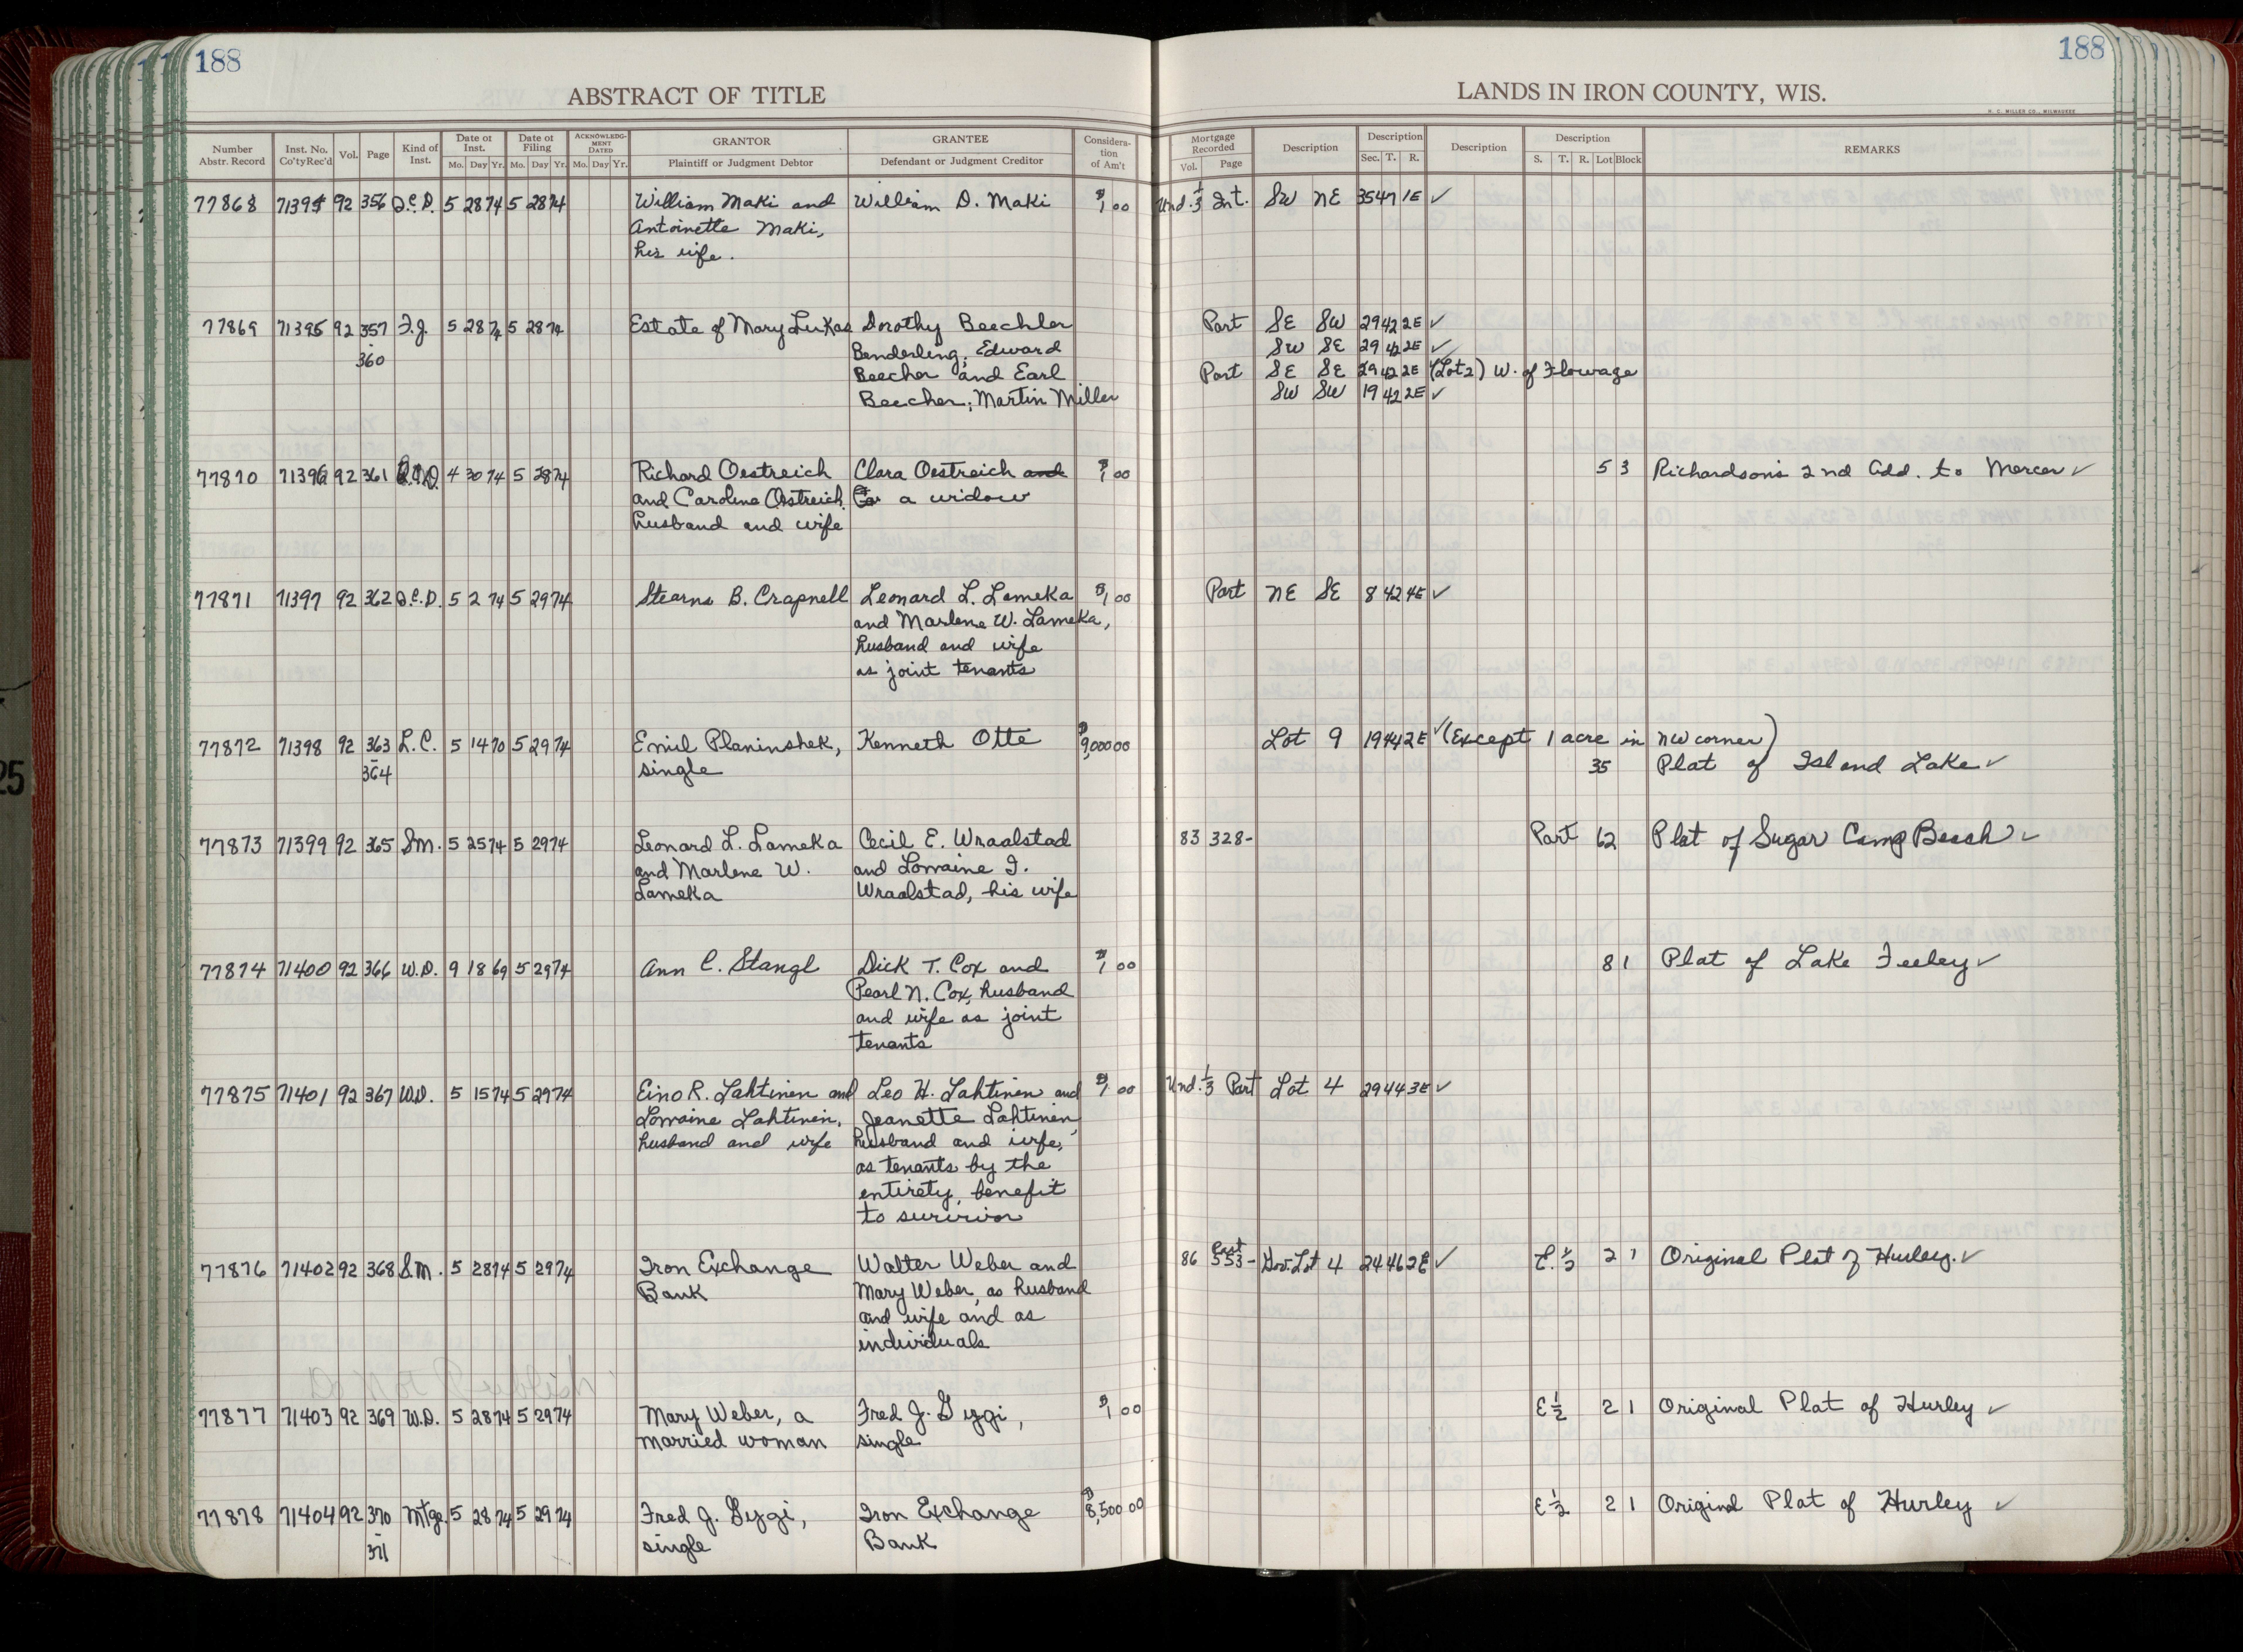 188
188
ABSTRACT OF TITLE
LANDS IN IRON COUNTY, WIS.
H. C. MILLER CO., MILWAUKEE
Number Abstr. Record | Inst. No. Co'tyRec'd | Vol. | Page | Kind of Inst. | Date of Inst. Mo. Day Yr. | Date of Filing Mo. Day Yr. | ACKNOWLEDGMENT DATED Mo. Day Yr. | GRANTOR Plaintiff or Judgment Debtor | GRANTEE Defendant or Judgment Creditor | Consideration of Am't | Mortgage Recorded Vol. Page | Description | Description Sec. T. R. | Description | Description S. T. R. Lot Block | REMARKS
77868 71394 92 356 Q.C.D. 5 28 74 5 28 74 William Maki and William D. Maki $1 00 Und. 1/3 Int. SW NE 35 47 1E ✓
Antoinette Maki,
his wife.
77869 71395 92 357 F.J. 5 28 74 5 28 74 Estate of Mary Lukas Dorothy Beechler Part SE SW 29 42 2E ✓
- 360 Benderling, Edward SW SE 29 42 2E ✓
Beecher and Earl Part SE SE 29 42 2E (Lot 2) W. of Flowage
Beecher; Martin Miller SW SW 19 42 2E ✓
77870 71396 92 361 Q.C.D. 4 30 74 5 28 74 Richard Oestreich Clara Oestreich and $1 00 5 3 Richardson's 2nd Add. to Mercer ✓
and Caroline Oestreich, a widow
husband and wife
77871 71397 92 362 Q.C.D. 5 2 74 5 29 74 Stearns B. Crapnell Leonard L. Lameka $1 00 Part NE SE 8 42 4E ✓
and Marlene W. Lameka,
husband and wife
as joint tenants
77872 71398 92 363 L.C. 5 14 70 5 29 74 Emil Planinshek, Kenneth Otte $9,000 00 Lot 9 19 44 2E ✓ (Except 1 acre in NW corner)
- 364 single 35 Plat of Island Lake ✓
77873 71399 92 365 S.M. 5 25 74 5 29 74 Leonard L. Lameka Cecil E. Wraalstad 83 328- Part 62 Plat of Sugar Camp Beach ✓
and Marlene W. and Lorraine I.
Lameka Wraalstad, his wife
77874 71400 92 366 W.D. 9 18 69 5 29 74 Ann C. Stangl Dick T. Cox and $1 00 8 1 Plat of Lake Feeley ✓
Pearl N. Cox, husband
and wife as joint
tenants
77875 71401 92 367 W.D. 5 15 74 5 29 74 Eino R. Lahtinen and Leo H. Lahtinen and $1 00 Und. 1/3 Part Lot 4 29 44 3E ✓
Lorraine Lahtinen, Jeanette Lahtinen,
husband and wife husband and wife,
as tenants by the
entirety, benefit
to survivor
77876 71402 92 368 S.M. 5 28 74 5 29 74 Iron Exchange Walter Weber and 86 553- Part Gov. Lot 4 24 46 2E ✓ E. 1/2 2 1 Original Plat of Hurley. ✓
Bank Mary Weber, as husband
and wife and as
individuals
77877 71403 92 369 W.D. 5 28 74 5 29 74 Mary Weber, a Fred J. Gygi, $1 00 E 1/2 2 1 Original Plat of Hurley ✓
married woman single
77878 71404 92 370 Mtge. 5 28 74 5 29 74 Fred J. Gygi, Iron Exchange $8,500 00 E 1/2 2 1 Original Plat of Hurley ✓
- 371 single Bank